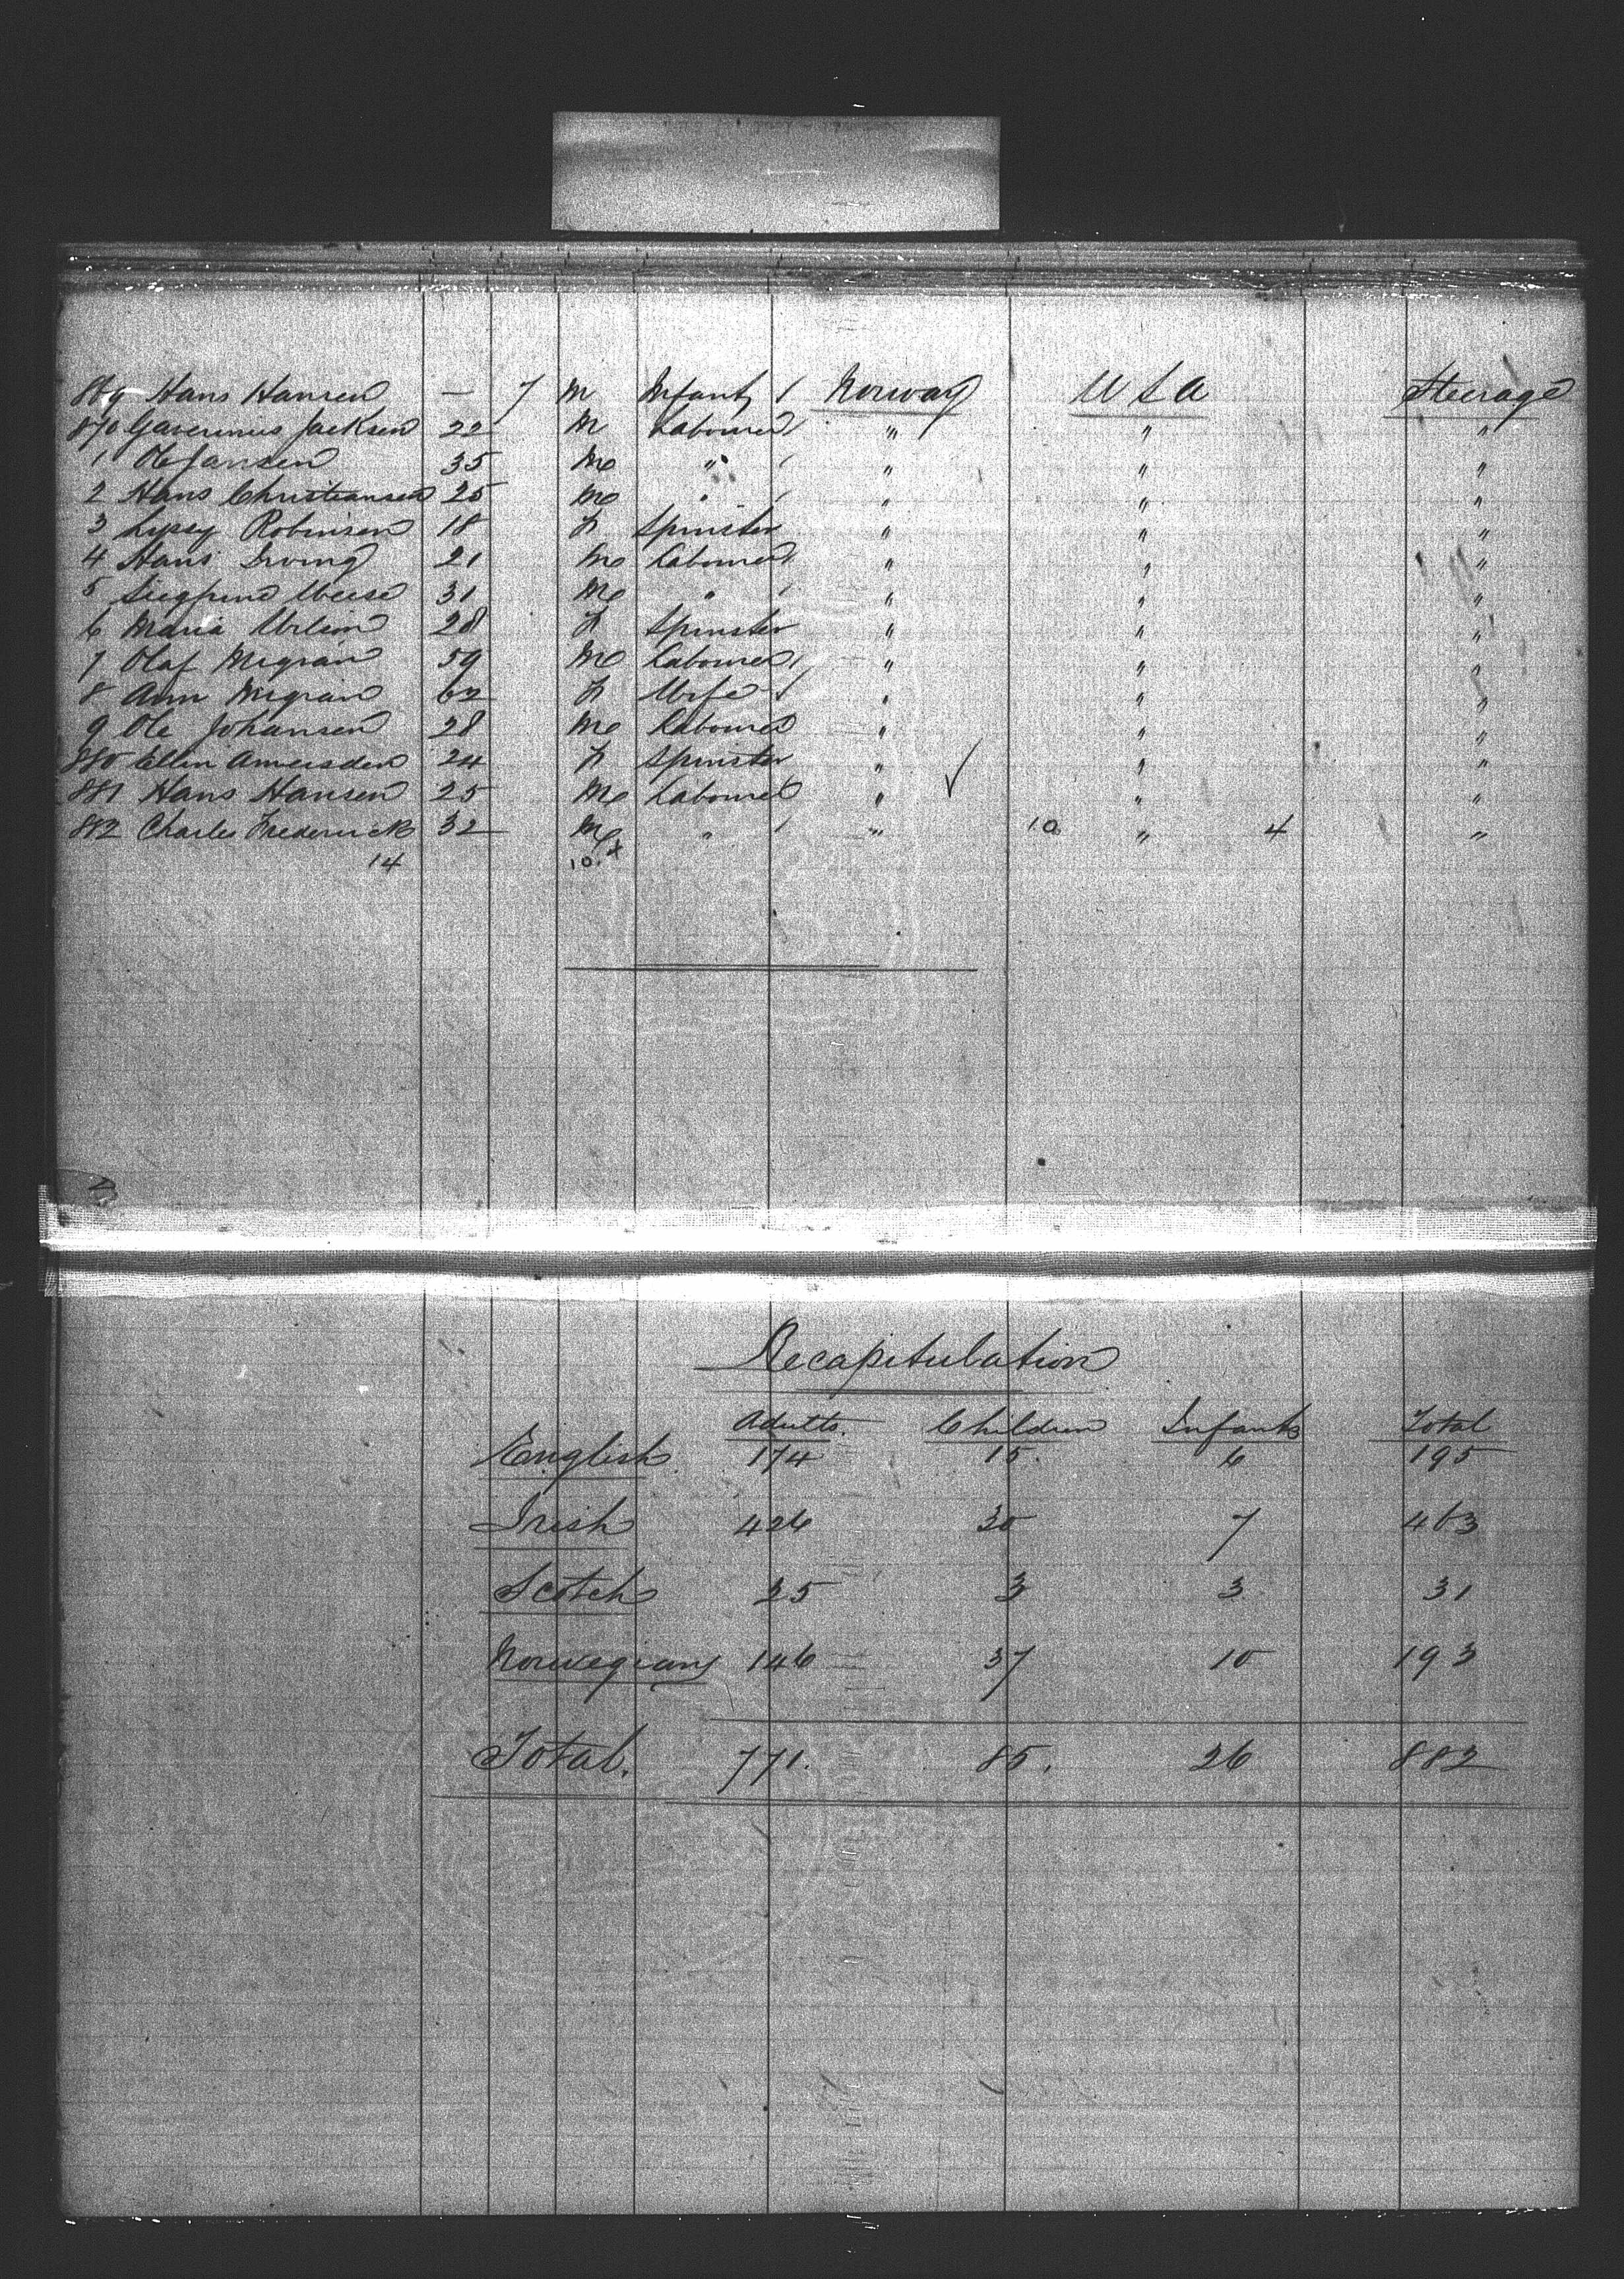 869 Hans Hansen — 7 M Infant / Norway U S A Steerage
870 Jacksen 22 M Labourer / " " "
1 Ole Jansen 35 M " / " " "
2 Hans Christiansen 25 M " / " " "
3 Robinsen 18 F Spinster " " "
4 Hans Irving 21 M Labourer / " " "
5 31 M " / " " "
6 Maria 28 F Spinster " " "
7 Olaf Megran 59 M Labourer / " " "
8 Ann Megran 62 F Wife / " " "
9 Ole Johansen 28 M Labourer " " "
880 Ellin 24 F Spinster " " "
881 Hans Hansen 25 M Labourer " ✓ " "
882 Charles Frederick 32 M " / " 10 " 4 "
14 10 +
Recapitulation
Adults. Children Infants Total
English 174 15. 6 195
Irish 426 30 7 463
Scotch 25 3 3 31
Norwegians 146 37 10 193
Total. 771. 85. 26 882